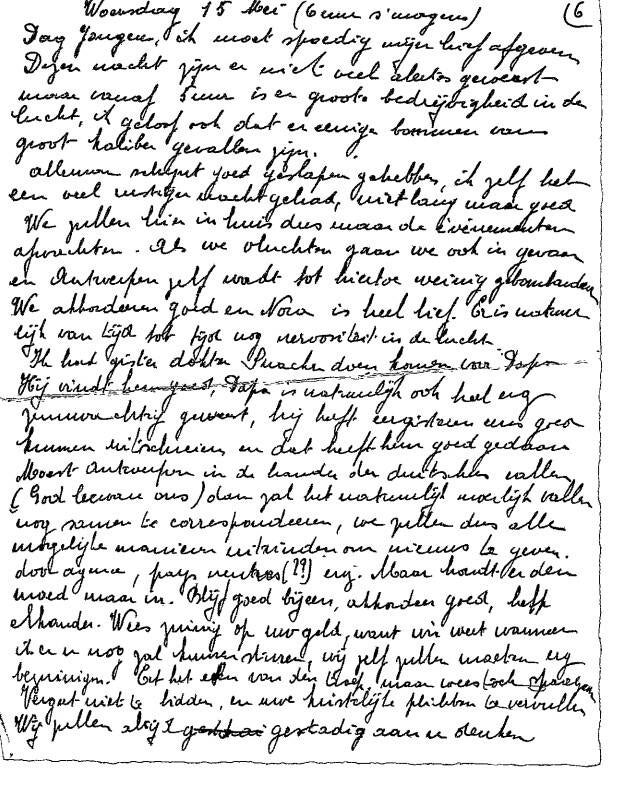 Woensdag 15 Mei (6 uur s'morgens) (6
Dag Jongens, ik moet spoedig mijn brief afgeven
Dezen nacht zijn er niet veel alertes geweest
maar vanaf 5 uur is er groote bedrijvigheid in de
lucht, ik geloof ook dat er eenige bommen van
groot kaliber gevallen zijn.
alleman schijnt goed geslapen te hebben, ik zelf heb
een veel rustiger nacht gehad, niet lang maar goed
We zullen hier in huis dus maar de évènementen
afwachten. Als we vluchten gaan we ook in gevaar
en Antwerpen zelf wordt tot hiertoe weinig gebombardeerd
We akkorderen goed en Nora is heel lief. Er is natuur
lijk van tijd tot tijd nog nervositeit in de lucht
Ik had gister dokter doen komen voor Papa
Hij vindt hem goed, Papa is natuurlijk ook heel erg
zenuwachtig geweest, hij heeft eergisteren eens goed
kunnen uitschreien en dat heeft hem goed gedaan
Moest Antwerpen in de handen der duitschers vallen
(God beware ons) dan zal het natuurlijk moeilijk vallen
nog samen te correspondeeren, we zullen dus alle
mogelijke manieren uitvinden om nieuws te geven.
door agence, pays neutres (??) enz. Maar houdt er den
moed maar in. Blijf goed bijeen, akkordeer goed, help
elkander. Wees zuinig op uw geld, want wie weet wanneer
ik er u nog zal kunnen sturen, wij zelf zullen moeten erg
bezuinigen. Eet het eten van den troep, maar weest toch spaarzaam
Vergeet niet te bidden, en uwe kristelijke plichten te vervullen
Wij zullen altijd gestadig aan u denken